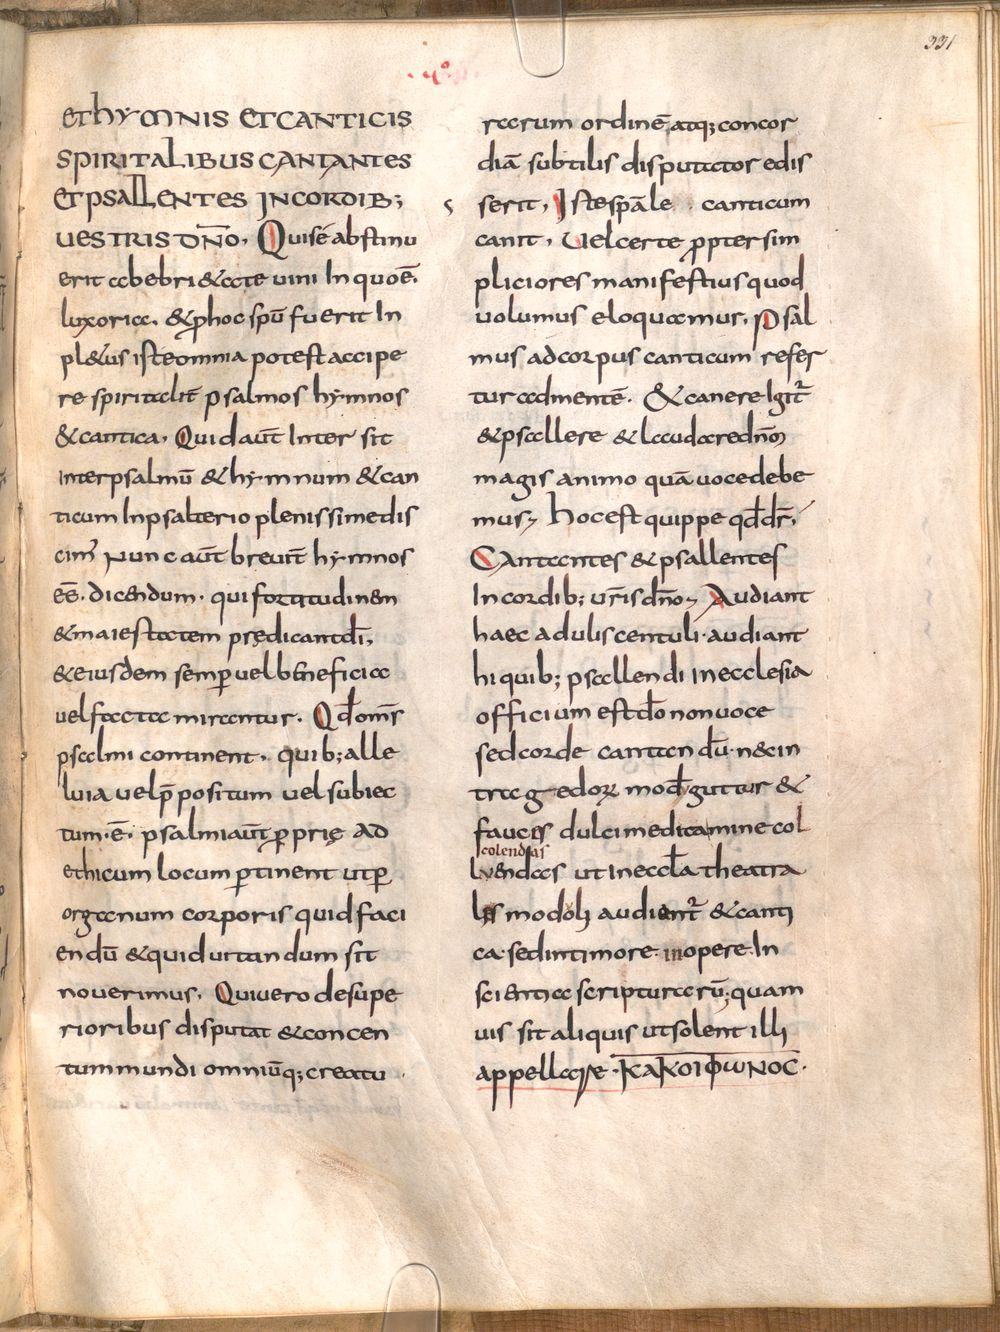 331
ET hYMNIS ET CANTICIS
SPIRITALIBUS CANTANTES
ET PSALLENTES IN CORDIB;
UESTRIS DN̄O. Quise abstinu
erit ab ebri&ate uini In quo ē.
luxoria. & p hoc spū fuerit In
pl&us iste omnia potest accipe
re spiritalit̄ psalmos hymnos
& cantica. Quid aut̄ Inter sit
inter psalmū & hymnum & can
ticum In psalterio plenissime dis
cim' Nunc aut̄ breuit̄ hymnos
eē. dicendum. qui fortitudinem
& maiestatem prędicant dī,
& eiusdem semp̄ uel beneficia
uel facta mirantur. Qd̄ om̄s
psalmi continent. quib; alle
luia uel p̄positum uel subiec
tum.ē. psalmi aut̄ proprię ad
ethicum locum ptinent ut p
organum corporis quid faci
endū & quid uitandum sit
nouerimus. Qui uero de supe
rioribus disputat & concen
tum mundi omniūq; creatu
rarum ordinē atq; concor
diā subtilis disputator edis
serit, Iste sp̄ale canticum
canit, Uel certe ppter sim
pliciores manifestius quod
uolumus eloquamur. Psal
mus ad corpus canticum refer
tur ad mentē. & canere Igit̄
& psallere & laudare dn̄m
magis animo quā uoce debe
mus, hoc est quippe qd̄ dr̄,
Cantantes & psallentes
In cordib; ur̄is dn̄o, Audiant
haec aduliscentuli. audiant
hi quib; psallendi In ecclesia
officium est dō non uoce
sed corde cantandū. n& in
tragedorꝝ mod̄ guttur &
fauces dulci medicamine col
colendas
luendas ut In eccl̄a theatra
les moduli audient̄ & canti
ca. sed in timore. in opere. In
scientia scripturarū; quam
uis sit aliquis ut solent illi
appellare . ΚΑΚΟΙΦωΝΟC.